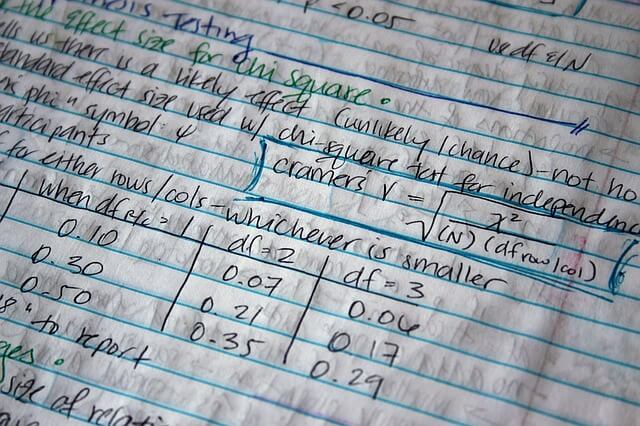 p < 0.05
Hypothesis Testing
use df & N
effect size for chi square.
us there is a likely effect (unlikely/chance)-not
Standard effect size used w/ chi-square test for independence
phi" symbol: φ
participants
cramer's V = √ x² / (N)(df row/col)
for either rows/cols - whichever is smaller
when df r/c = 1 | df = 2 | df = 3
0.10 | 0.07 | 0.06
0.30 | 0.21 | 0.17
0.50 | 0.35 | 0.29
" to report
size of